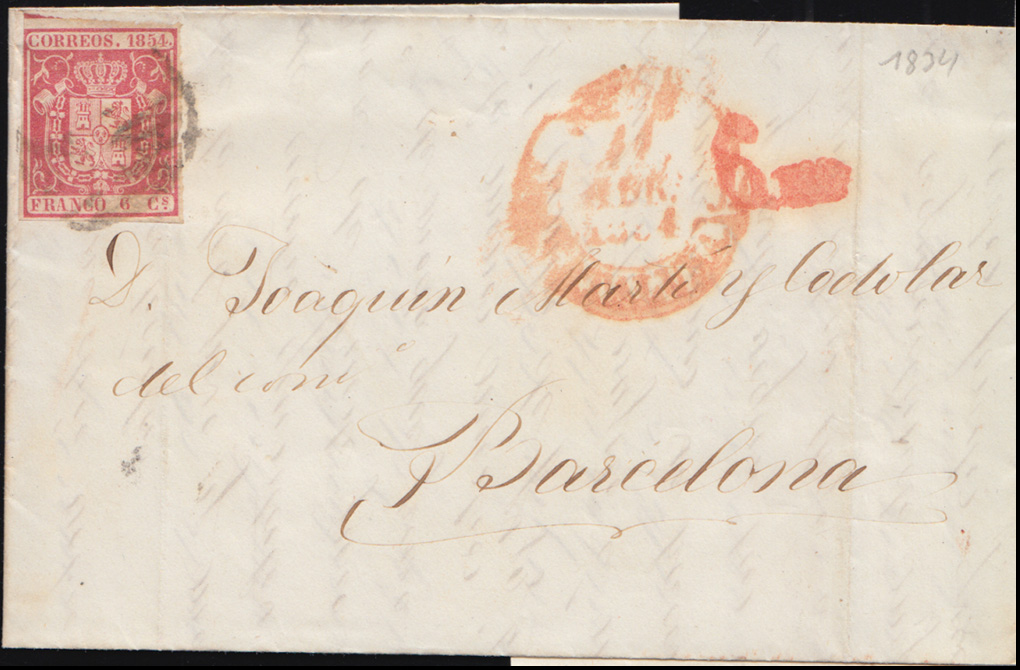 CORREOS. 1854.
FRANCO 6 Cs
1854
11
ABR.
1854
D. Joaquin Martí y Codolar
del com.o
Barcelona